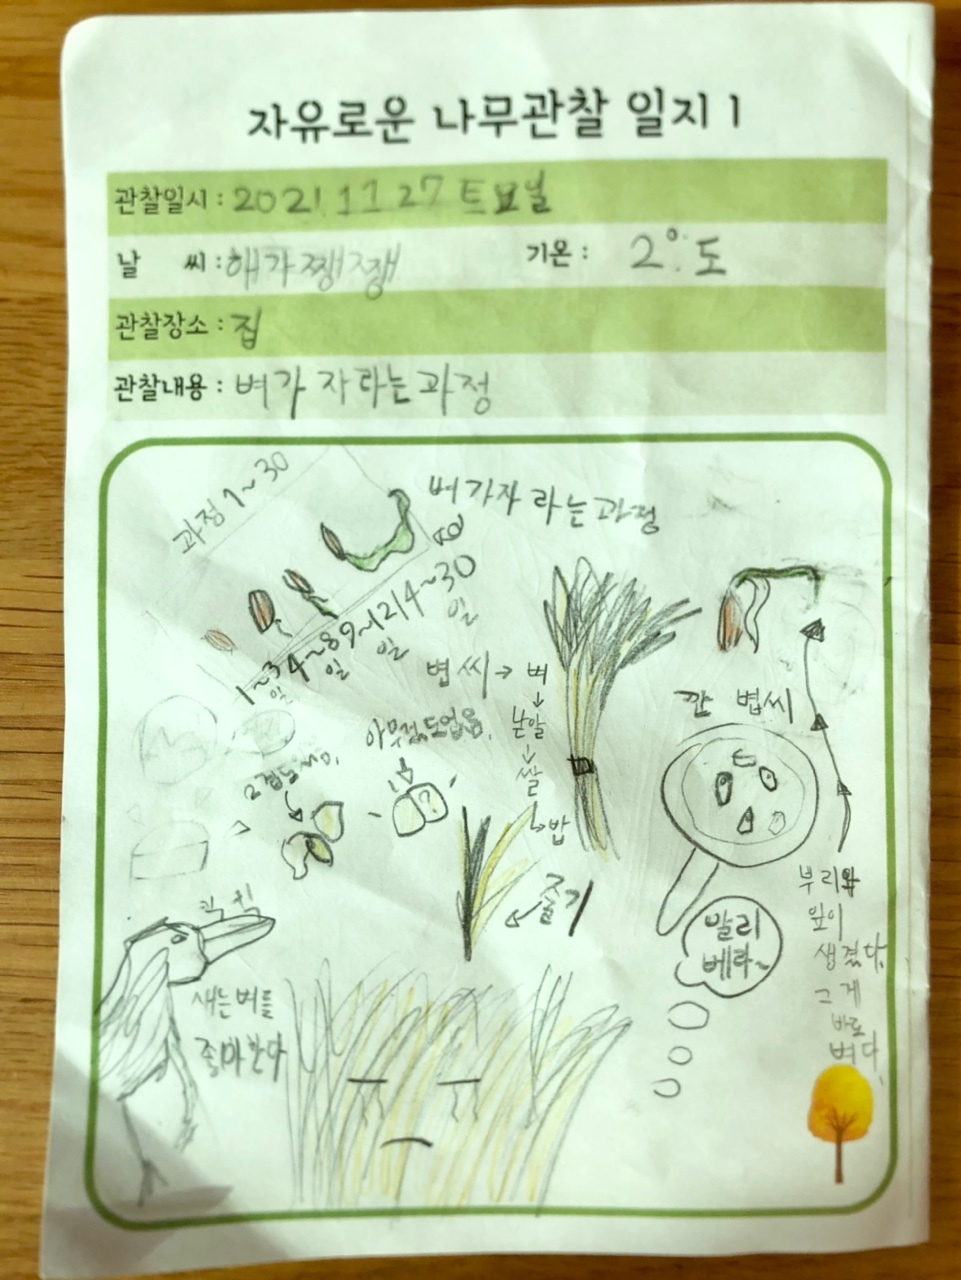 자유로운 나무관찰 일지 1
관찰일시 : 2021 11 27 토요일
날 씨 : 해가 쨍쨍
기온 : 2°도
관찰장소 : 집
관찰내용 : 벼가 자라는 과정
과정 1~30
벼가자 라는 과정
1~3일
4~8일
9~12일
14~30일
볍씨 → 벼
↓
낟알
↓
쌀
↳ 밥
아무것도없음.
?
깐 볍씨
줄기
빨리
베라~
부리와
잎이
생겼다.
그게
바로
벼다.
새는벼를
좋아한다